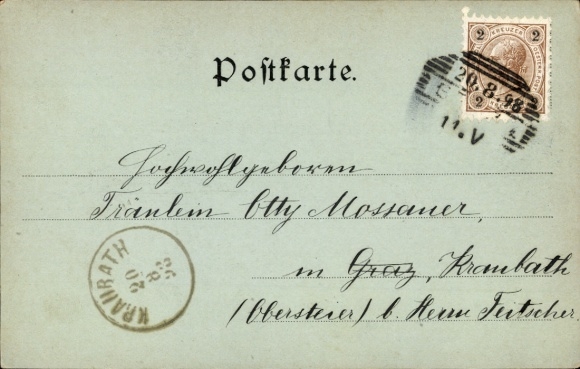 Postkarte.
2 KREUZER 2
2
20.8.98
11.V
Hochwohlgeboren
Fräulein Otty Mossauer,
in Graz, Kraubath
(Obersteier) b. Herrn Feitscher.
KRAUBATH
20
8
98